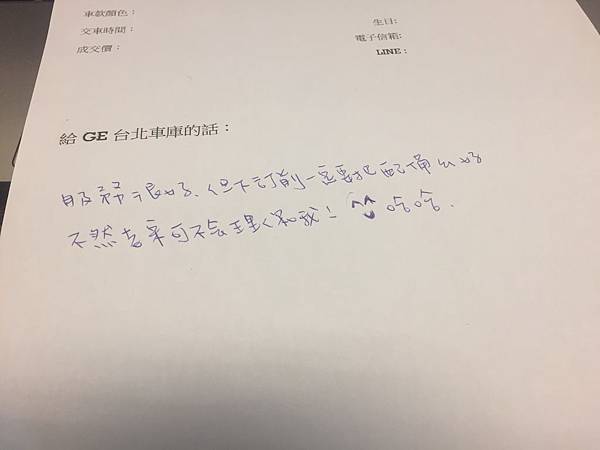 車款顏色：
生日:
交車時間：
電子信箱:
成交價：
LINE：
給 GE 台北車庫的話：
服務很好、但下訂前一定要把配備ㄠ好
不然 可不會理 我！ ^^ 哈哈.